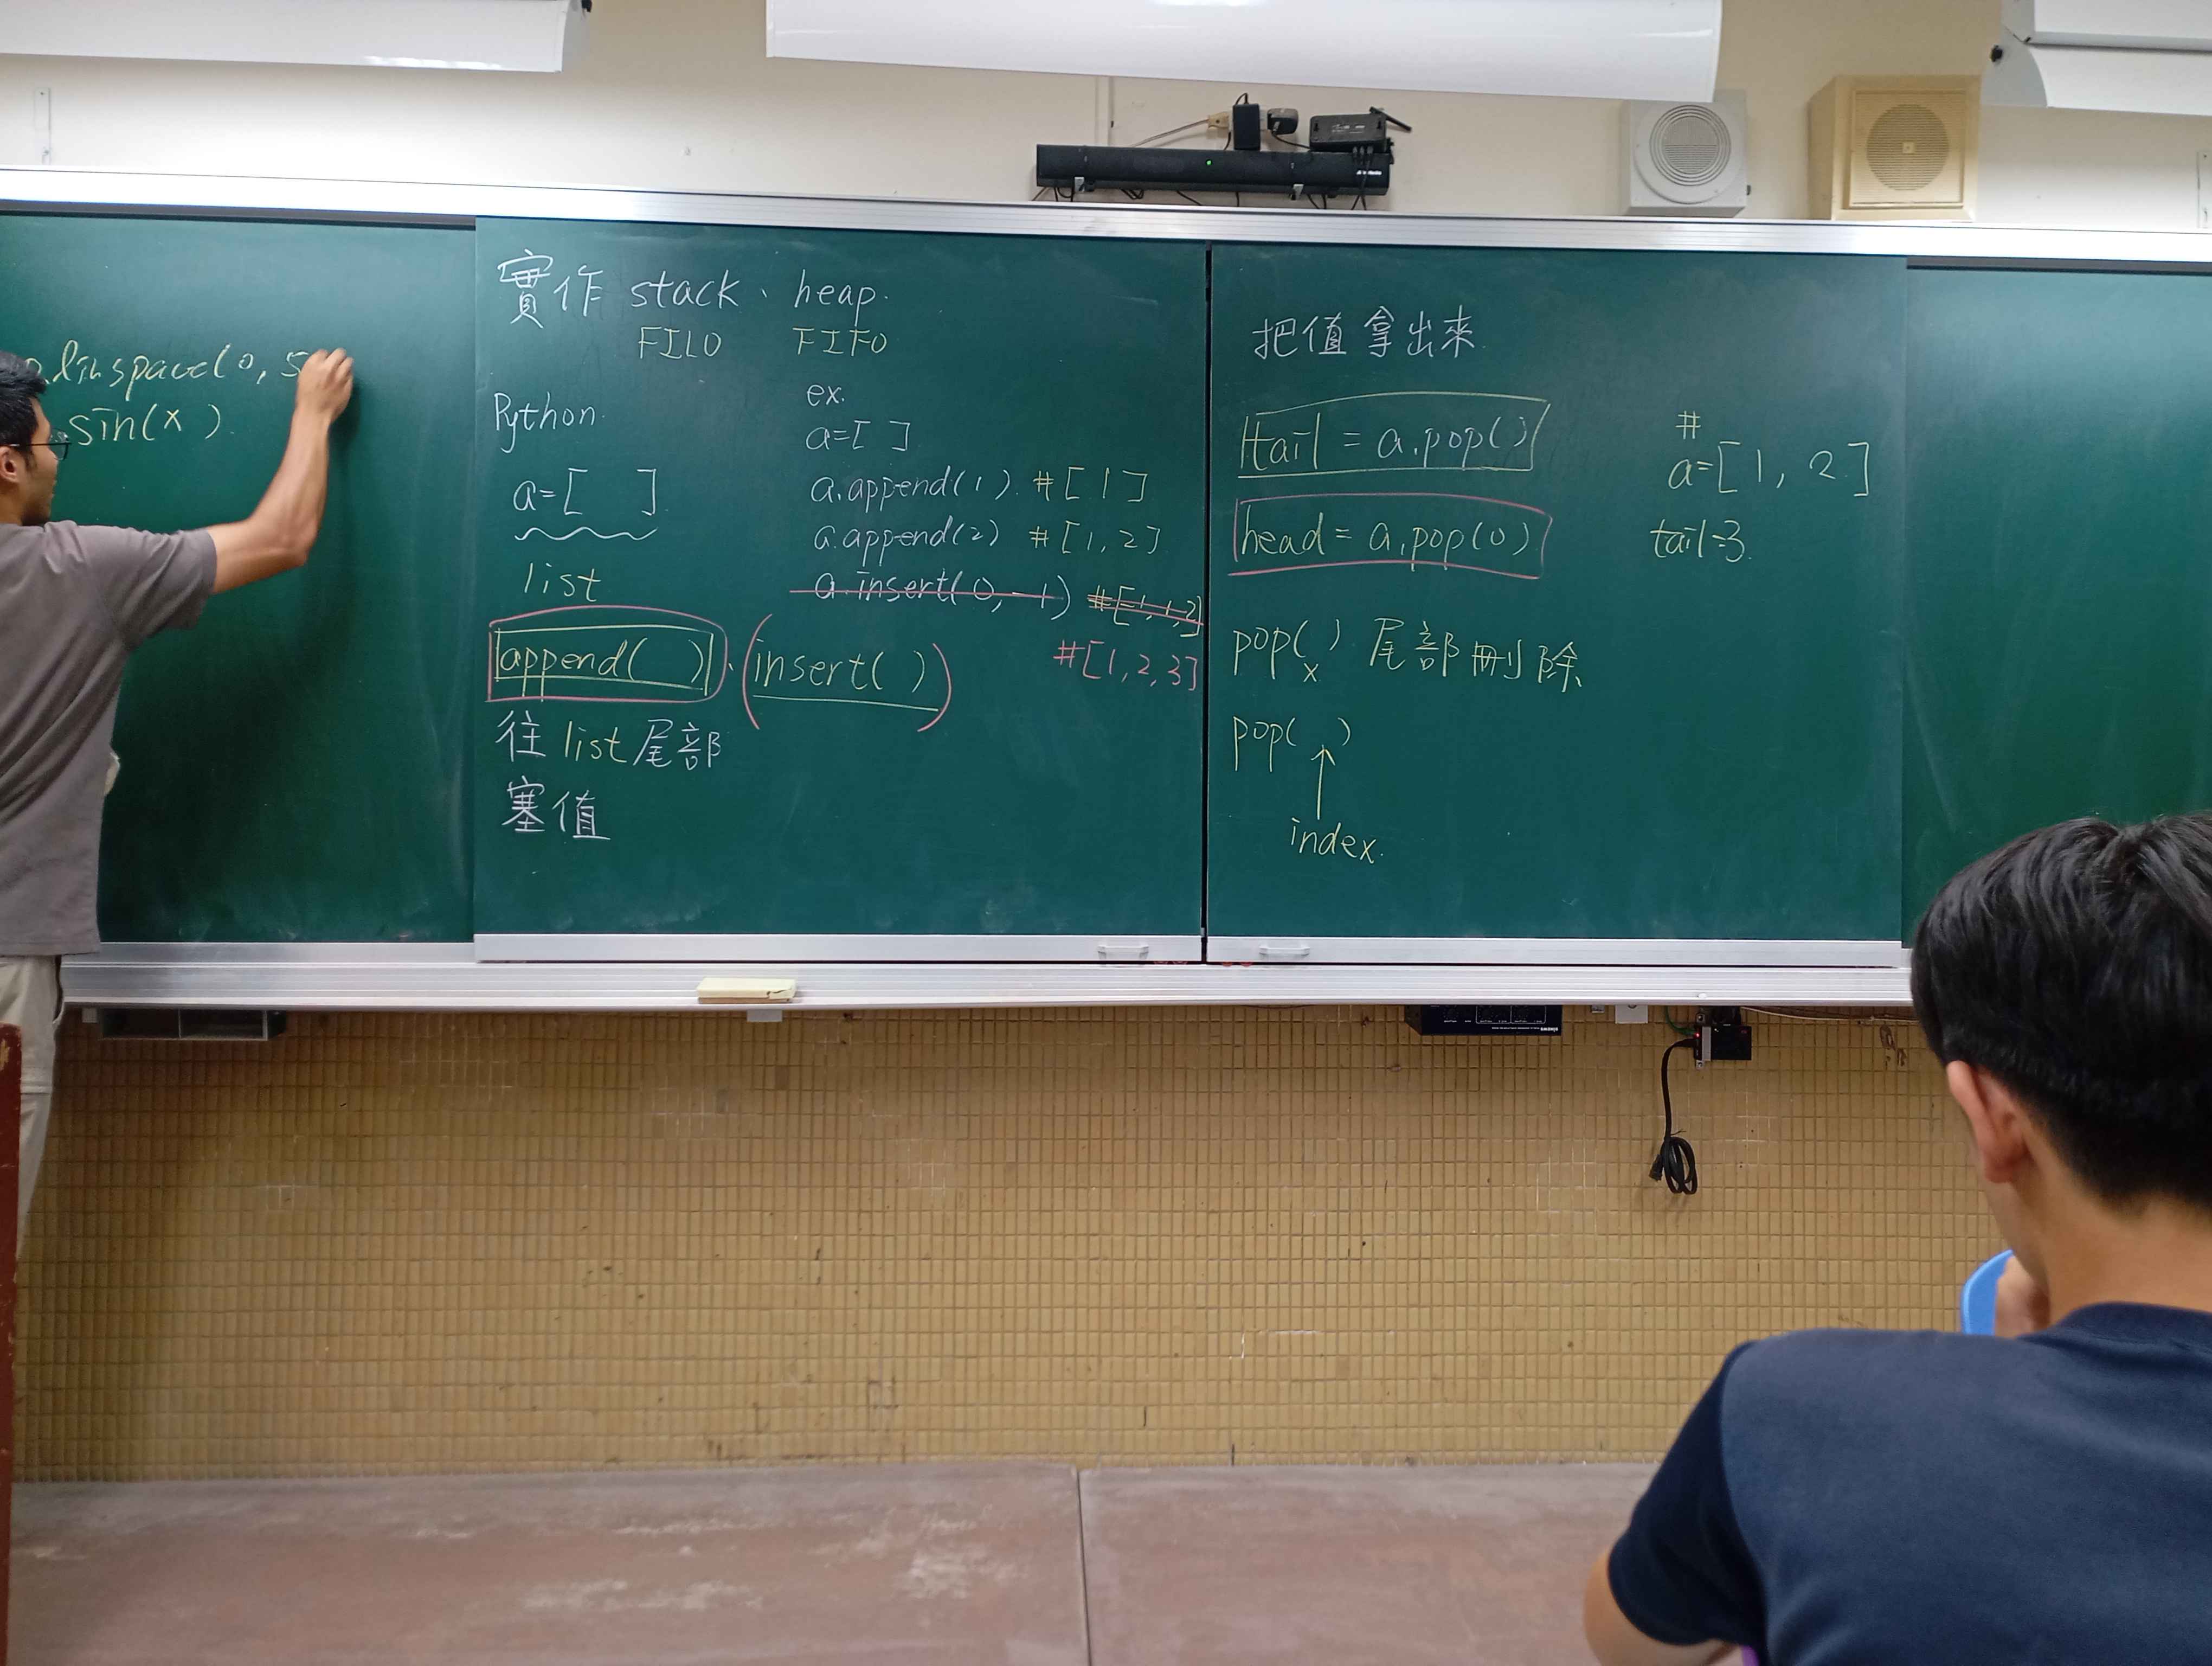 linspace(0, 5
sin(x)
實作 stack、heap.
FILO FIFO
Python.
a=[ ]
list
append( )、(insert( ))
往 list 尾部
塞值
ex.
a=[ ]
a.append(1). #[1]
a.append(2) #[1, 2]
a.insert(0, -1) #[-1, 1, 2]
#[1, 2, 3]
把值拿出來.
tail = a.pop()
head = a.pop(0)
pop(x) 尾部刪除
pop( )
index.
#
a=[1, 2]
tail=3.